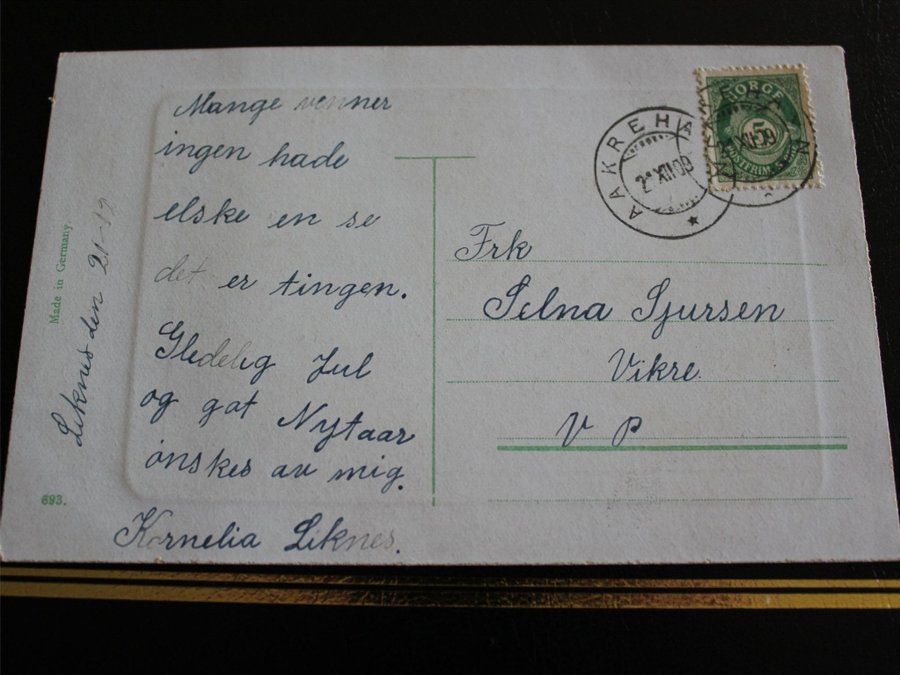 Mange venner
ingen hade
elske en se
det er tingen.
Gledelig Jul
og got Nytaar
ønskes av mig.
Kornelia Liknes.
Liknes den 21-12
Made in Germany
693.
NORGE
5
POSTFRIM
AAKREHA
2 XII 09
XII 09
Frk
Selna Sjursen
Vikre
V P